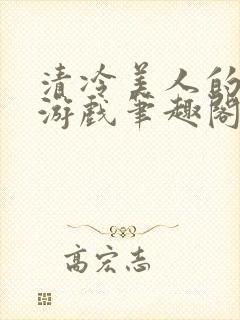 清冷美人的
游戏笔趣阁
高宏志